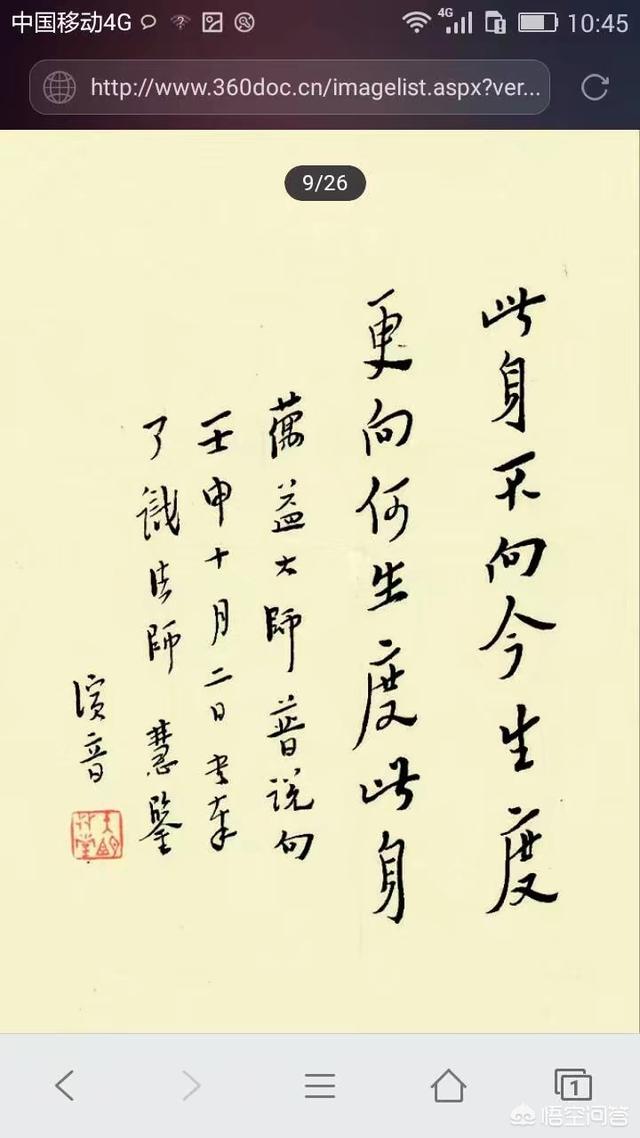 中国移动4G
4G
10:45
http://www.360doc.cn/imagelist.aspx?ver...
9/26
此身不向今生度
更向何生度此身
蕅益大師普説句
壬申十月二日書奉
了識法師 慧鑒
演音
1
悟空问答